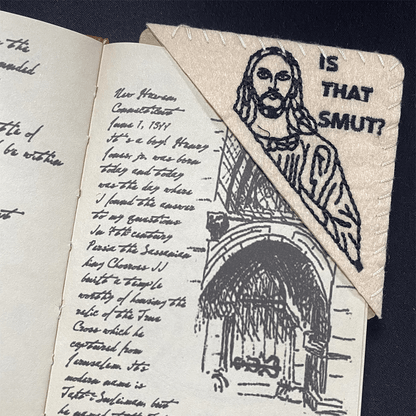 to the
nded
te of
be written
New Haven
Connecticut
June 1, 1944
It's a boy! Henry
Jones jr. was born
today and today
was the day where
I found the answer
to my questions
In 7th century
Persia the Sassanian
king Chosroes II
built a temple
worthy of housing the
relic of the True
Cross which he
captured from
Jerusalem its
modern name is
Takht-i Suleiman but
he named it
IS
THAT
SMUT?